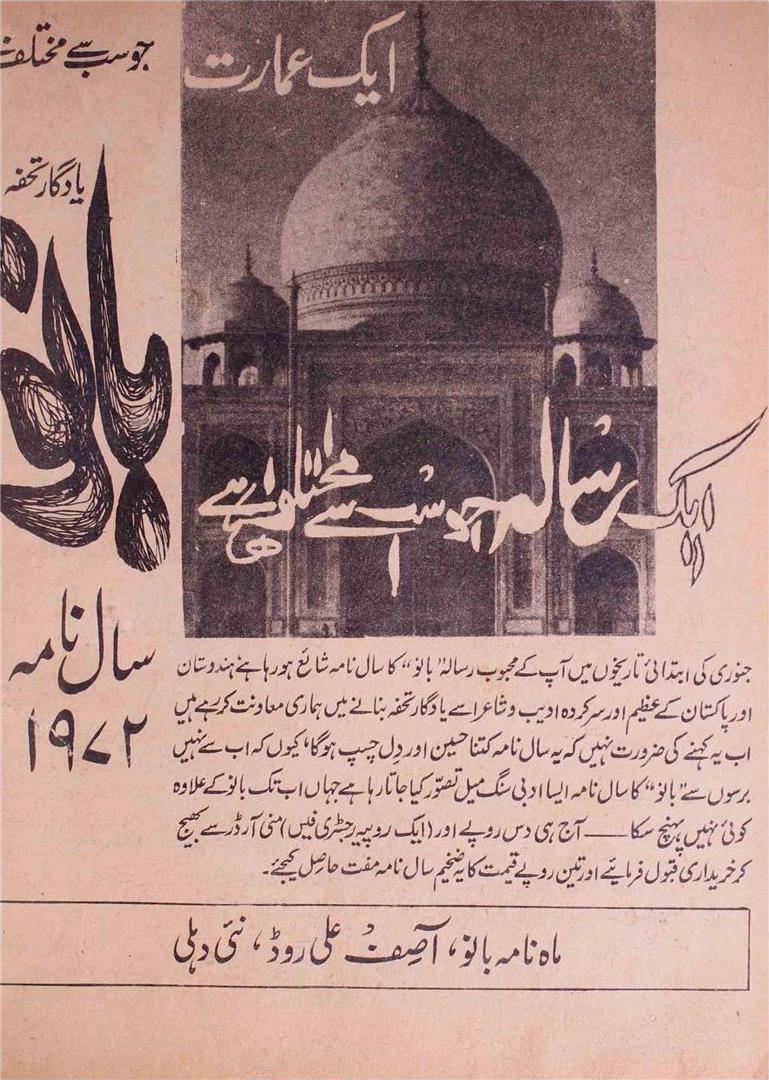 ایک عمارت
جو سب سے مختلف
یادگار تحفہ
بانو
ایک رسالہ جو سب سے مختلف ہے
سال نامہ
۱۹۷۲
جنوری کی ابتدائی تاریخوں میں آپ کے محبوب رسالہ "بانو" کا سال نامہ شائع ہو رہا ہے ہندوستان
اور پاکستان کے عظیم اور سرکردہ ادیب و شاعر اسے یادگار تحفہ بنانے میں ہماری معاونت کر رہے ہیں
اب یہ کہنے کی ضرورت نہیں کہ یہ سال نامہ کتنا حسین اور دل چسپ ہوگا، کیوں کہ اب سے نہیں
برسوں سے "بانو" کا سال نامہ ایسا ادبی سنگ میل تصوّر کیا جاتا رہا ہے جہاں اب تک بانو کے علاوہ
کوئی نہیں پہنچ سکا — آج ہی دس روپے اور (ایک روپیہ رجسٹری فیس) منی آرڈر سے بھیج
کر خریداری قبول فرمائیے اور تین روپے قیمت کا یہ ضخیم سال نامہ مفت حاصل کیجئے۔
ماہ نامہ بانو، آصف علی روڈ، نئی دہلی